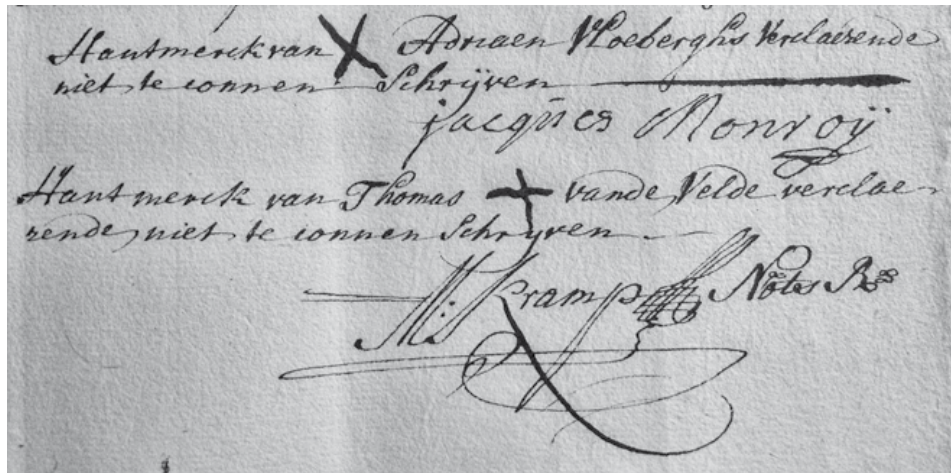 Hantmerck van X Adriaen Vloeberghs verclaerende
niet te connen Schrÿven
jacques Monroÿ
Hantmerck van Thomas + vande Velde verclae-
rende niet te connen Schryven
M: Kramp Notes